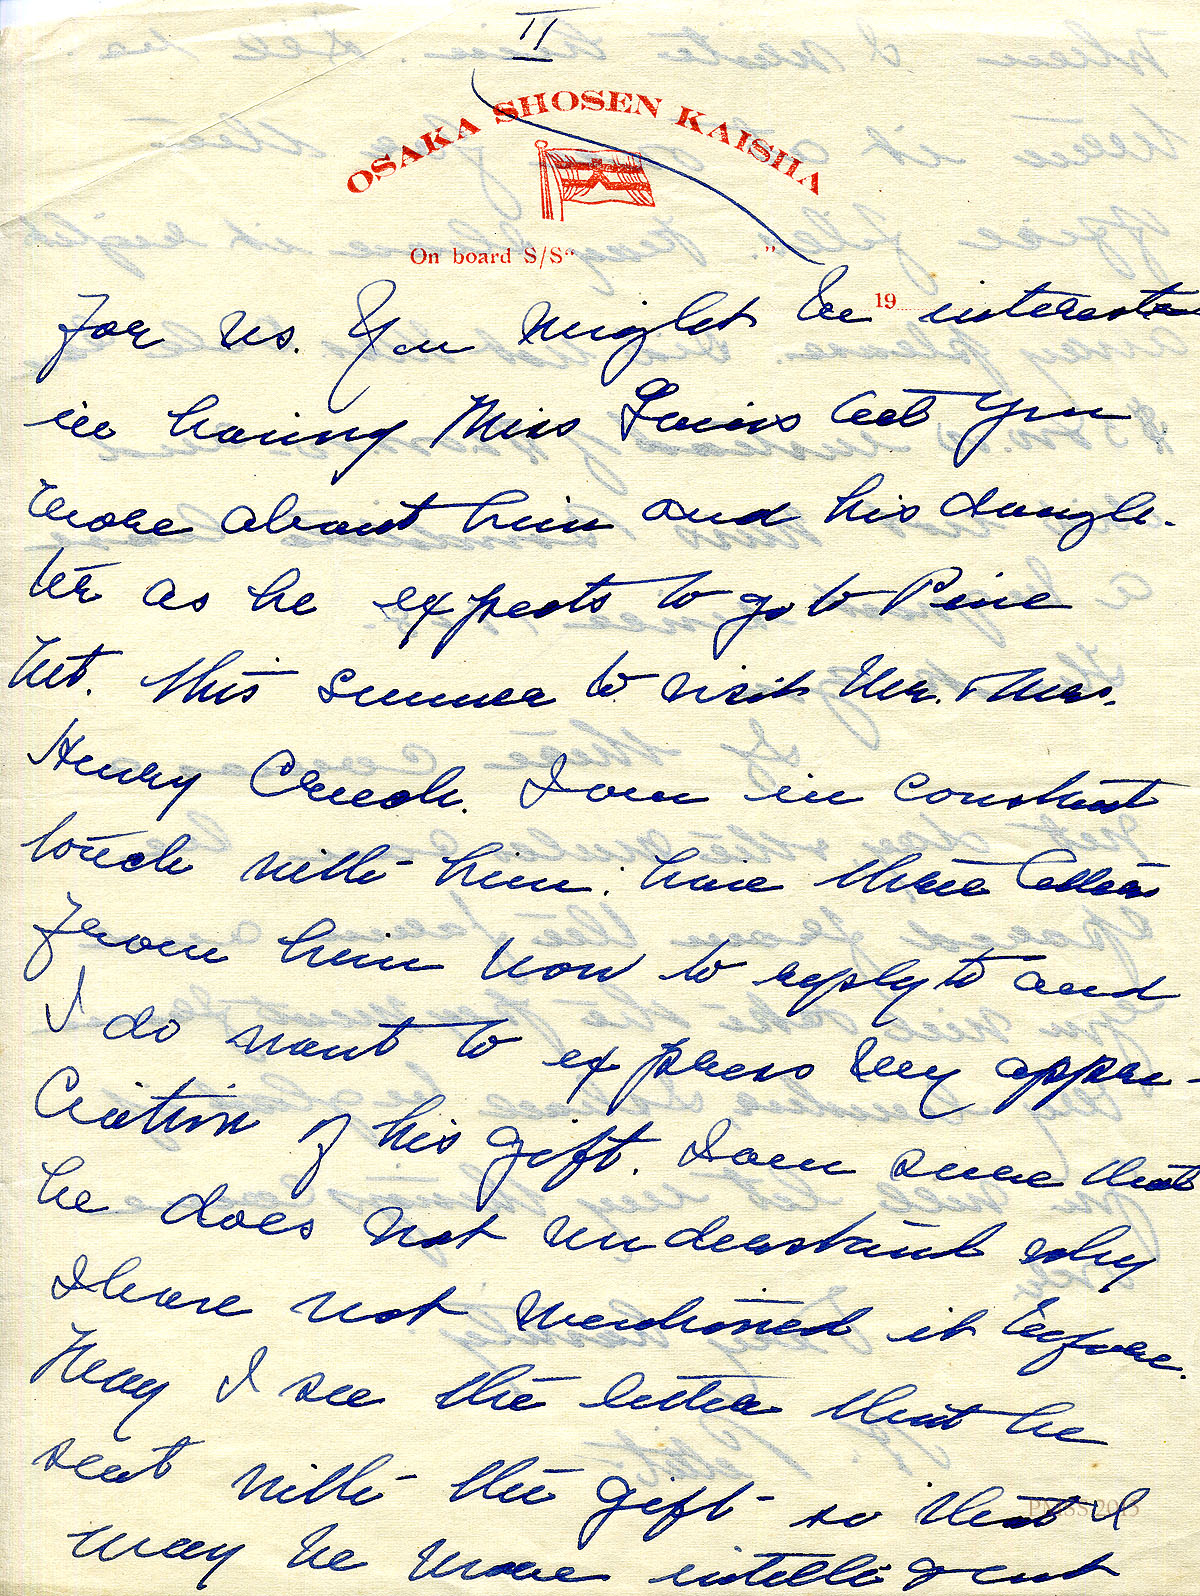 II
OSAKA SHOSEN KAISHA
On board S/S " "
19
for us. You might be interested
in having Miss Gaines tell you
more about him and his daugh-
ter as he expects to go to Pine
Mt. this summer to visit Mr. & Mrs.
Henry Creech. I am in constant
touch with him: have three letters
from him now to reply to and
I do want to express my appre-
ciation of his gift. I am sure that
he does not understand why
I have not mentioned it before.
May I see the letter that he
sent with the gift - so that I
may be more intelligent
PMSS 2015